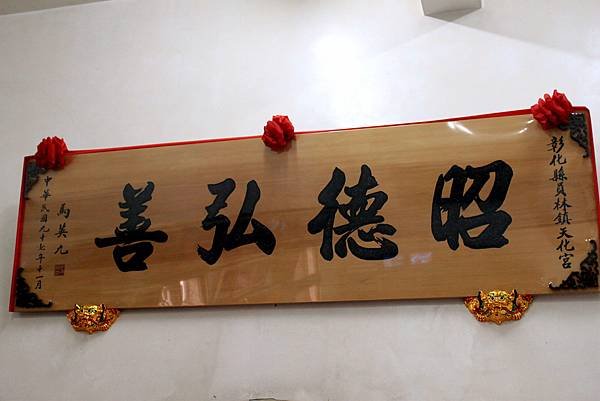 彰化縣員林鎮天化宮
昭德弘善
馬英九
中華民國九十七年十一月